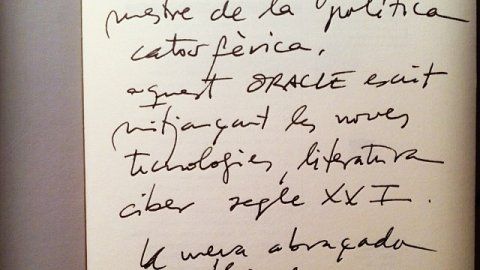 mestre de la política
catosfèrica.
aquest ORACLE escrit
mitjançant les noves
tecnologies, literatura
ciber segle XXI.
la meva abraçada